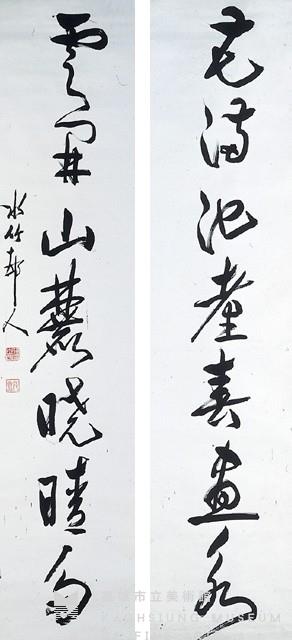 花滿池臺春晝永
雲開山麓曉晴勻
水竹邨人
高雄市立美術館
KAOHSIUNG MUSEUM